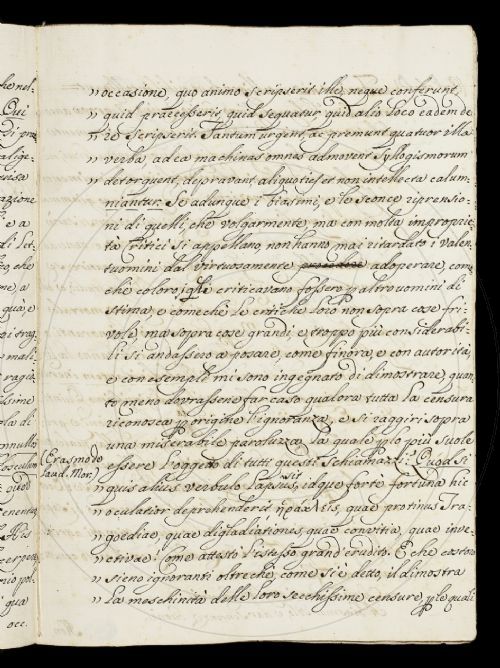 " occasione, quo animo scripserit ille, neque conferunt,
" quid praecesserit, quid sequatur, quid alio loco eadem de
" re scripserit. Tantum urgent, ac premunt quatuor illa
" verba, ad ea machinas omnes admovent Syllogismorum
" detorquent, depravant aliquoties et non intellecta calum-
niantur. Se adunque i biasimi, e le sconce riprensio-
ni di quelli, che volgarmente, ma con molta improprie-
tà Critici si appellano, non hanno mai ritardato i valen-
tuomini dal virtuosamente adoperare, come
chè coloro, i quali criticavano fossero p altro uomini di
stima, e comechè le critiche loro non sopra cose fri-
vole, ma sopra cose grandi, e troppo più considerabi-
li si andassero a posare, come finora, e con autorità,
e con esempli mi sono ingegnato di dimostrare, quan-
to meno dovrassene far caso qualora tutta la censura
riconosca p origine l'ignoranza, e si raggiri sopra
una miserabile paroluzza, la quale p lo più suole
essere l'oggetto di tutti questi schiamazzi: Quod si
(Erasmo de
Laud. Mor.)
" quis alius verbulo lapsus sit, idque forte fortuna hic
" oculatior deprehenderit, quae protinus Tra-
" goediae, quae digladiationes, quae convitia, quae inve-
" ctivae! Come attestò l'istesso grand'erudito. E che costoro
" sieno ignoranti oltrechè, come si è detto, il dimostra
" la meschinità delle loro secchissime censure, p le quali
he nel-
Qui
alige-
razione
e a
che
a
quà, e
mali-
la di
osculum
quod
His
qua
occ.